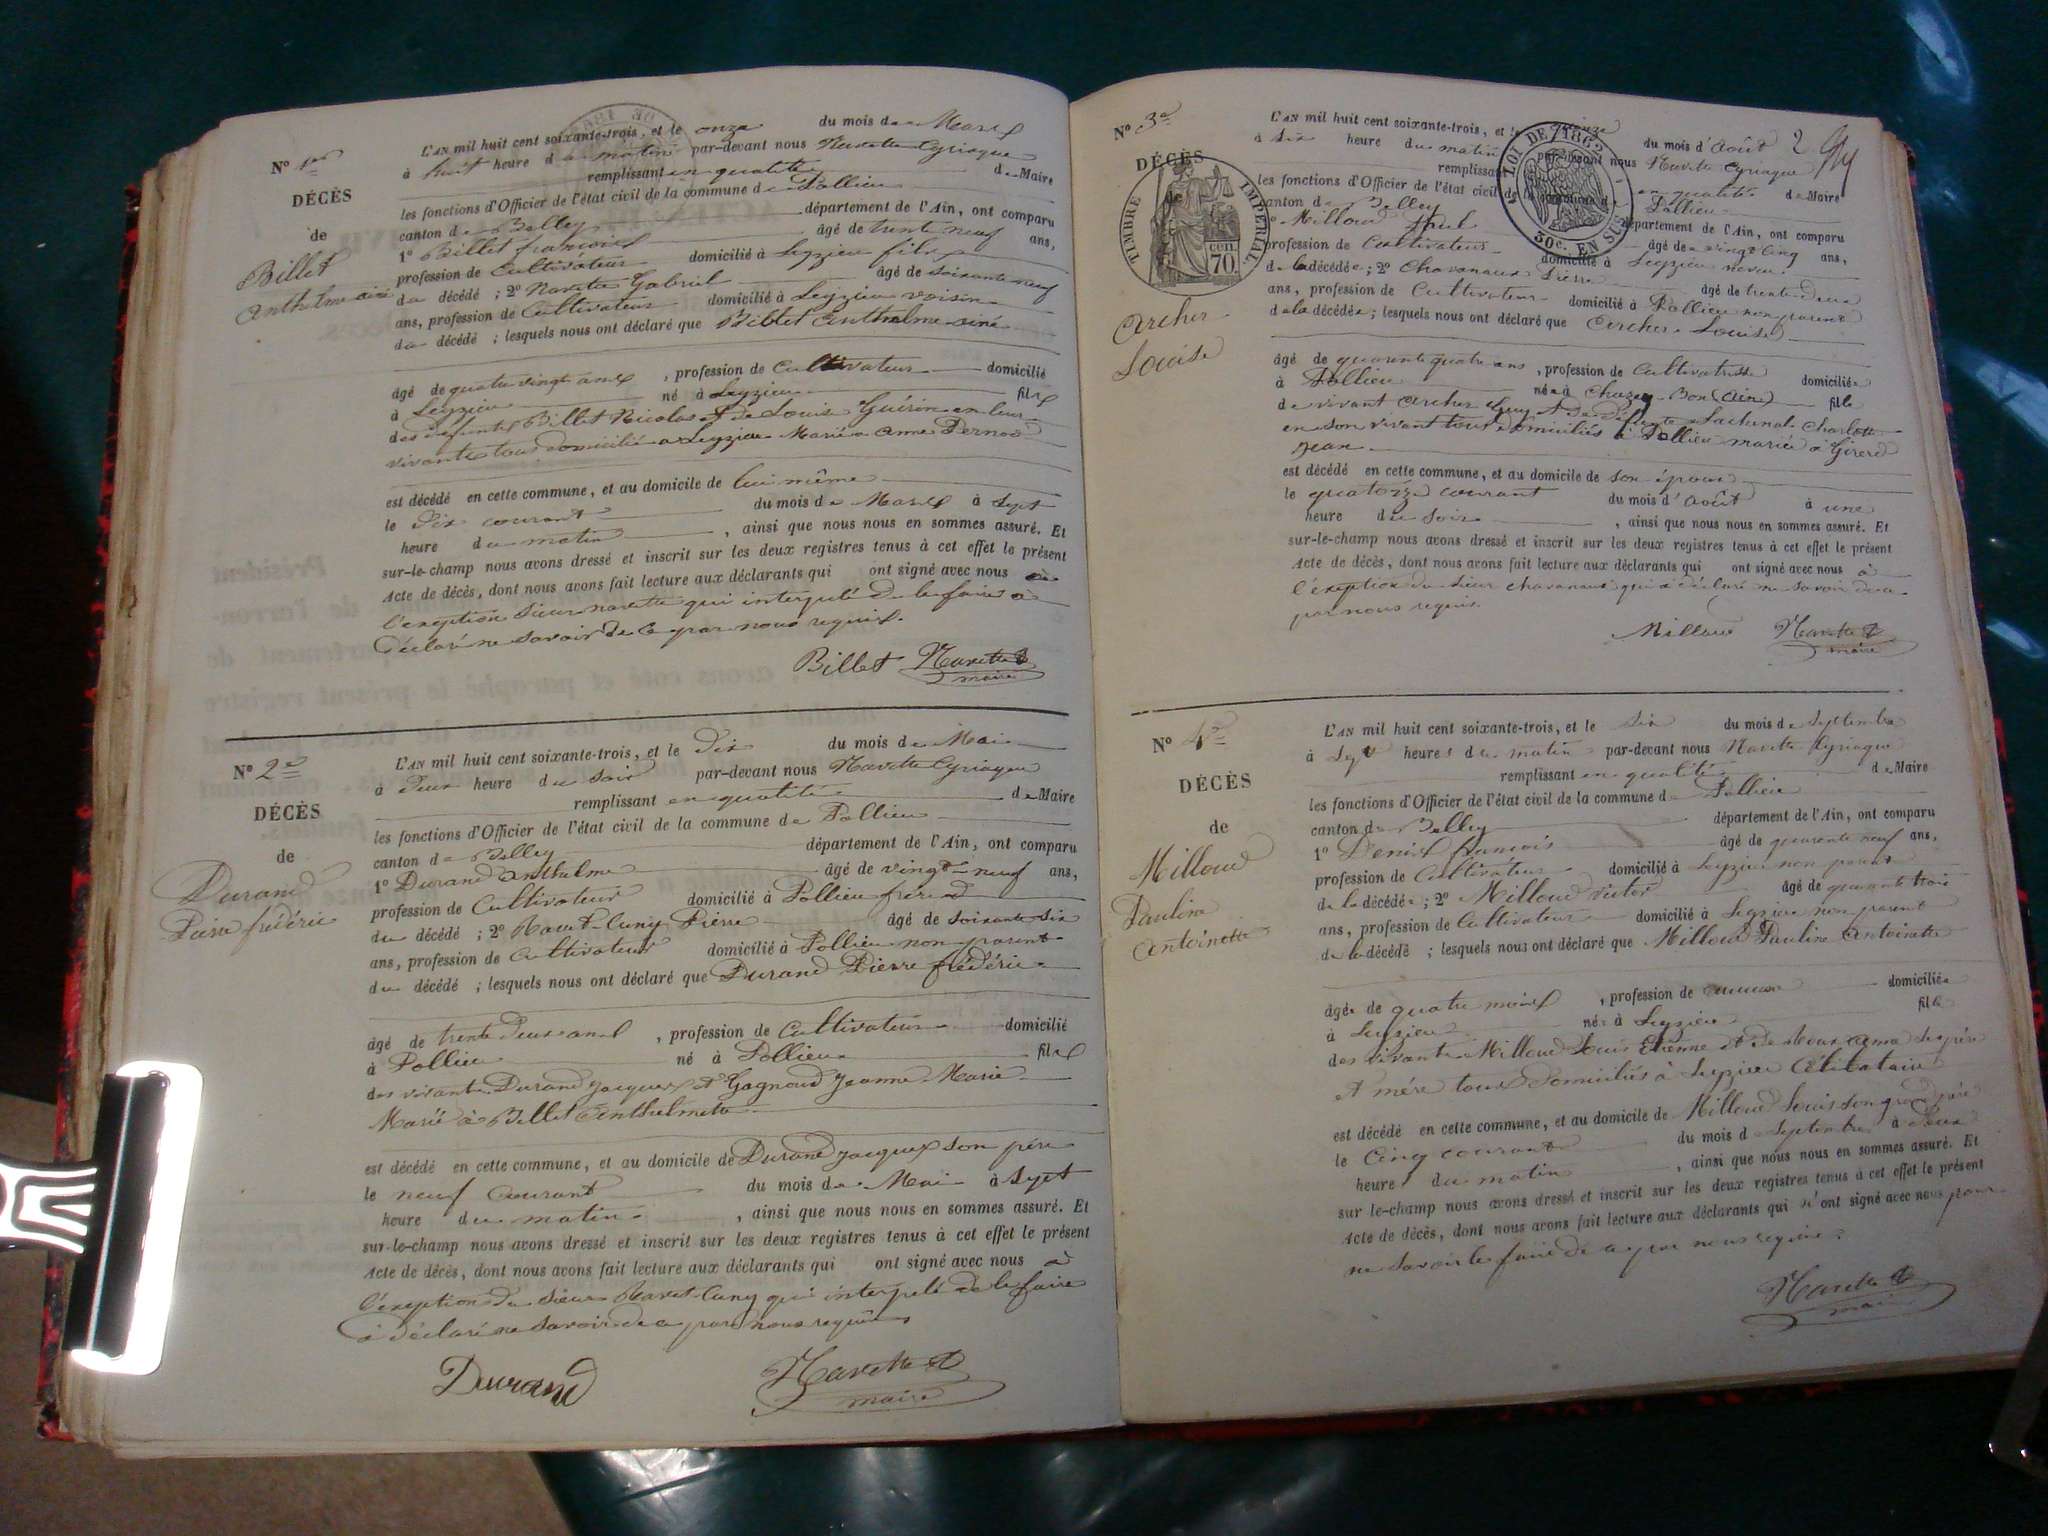 No 1er
DÉCÈS
de
Billet
Anthelme ainé
L'AN mil huit cent soixante-trois, et le onze du mois de Mars
à huit heure du matin par-devant nous Navette Cyriaque
remplissant en qualité de Maire
les fonctions d'Officier de l'état civil de la commune de Pollieu
canton de Belley département de l'Ain, ont comparu
1º Billet françois âgé de trente neuf ans,
profession de Cultivateur domicilié à Leyzieu fils
du décédé ; 2º Navette Gabriel âgé de soixante neuf
ans, profession de Cultivateur domicilié à Leyzieu voisin
du décédé ; lesquels nous ont déclaré que Billet Anthelme ainé
âgé de quatre vingt ans , profession de Cultivateur domicilié
à Leyzieu né à Leyzieu fils
des défunts Billet Nicolas et de Louis Guérin en leur
vivants tous domicilié à Leyzieu Marié à Anne Pernod
est décédé en cette commune, et au domicile de lui même
le Dix courant du mois de Mars à Sept
heure du matin , ainsi que nous nous en sommes assuré. Et
sur-le-champ nous avons dressé et inscrit sur les deux registres tenus à cet effet le présent
Acte de décès, dont nous avons fait lecture aux déclarants qui ont signé avec nous à
l'exeption sieur navette qui interpelé de le faire à
Déclaré ne savoir de ce par nous requis.
Billet Navette
maire
No 2e
DÉCÈS
de
Durand
Pierre frédéric
L'AN mil huit cent soixante-trois, et le Dix du mois de Mai
à Deux heure du soir par-devant nous Navette Cyriaque
remplissant en qualité de Maire
les fonctions d'Officier de l'état civil de la commune de Pollieu
canton de Belley département de l'Ain, ont comparu
1º Durand Anthelme âgé de vingt-neuf ans,
profession de Cultivateur domicilié à Pollieu frère
du décédé ; 2º Ravet-Cuny Pierre âgé de soixante six
ans, profession de Cultivateur domicilié à Pollieu non parent
du décédé ; lesquels nous ont déclaré que Durand Pierre frédéric
âgé de trente Deux ans , profession de Cultivateur domicilié
à Pollieu né à Pollieu fils
des vivants Durand Jacques et Gagnoud Jeanne Marie
Marié à Billet Anthelmete
est décédé en cette commune, et au domicile de Durand Jacques son père
le neuf Courant du mois de Mai à Sept
heure du matin , ainsi que nous nous en sommes assuré. Et
sur-le-champ nous avons dressé et inscrit sur les deux registres tenus à cet effet le présent
Acte de décès, dont nous avons fait lecture aux déclarants qui ont signé avec nous à
l'exeption du Sieur Ravet-Cuny qui interpelé de le faire
à déclaré ne savoir de ce par nous requis
Durand Navette
maire
No 3e
DÉCÈS
de
Archer
Louise
TIMBRE IMPERIAL
CEN 70.
LOI DE 1862
30c. EN SUS
2
L'AN mil huit cent soixante-trois, et le quinze du mois d'Août
à six heure du matin par-devant nous Navette Cyriaque
remplissant en qualité de Maire
les fonctions d'Officier de l'état civil de la commune de Pollieu
canton de Belley département de l'Ain, ont comparu
1º Milloud Paul âgé de vingt Cinq ans,
profession de Cultivateur domicilié à Leyzieu neveu
de la décédée ; 2º Chavanaux Pierre âgé de trente deux
ans, profession de Cultivateur domicilié à Pollieu non parent
de la décédée ; lesquels nous ont déclaré que Archer Louise
âgé de quarente quatre ans , profession de Cultivatrisse domiciliée
à Pollieu née à Chazey-Bon (Ain) fille
de vivant Archer Guy et de Défunte Lachenal Charlotte
en son vivant tous domiciliés à Pollieu mariée à Girerd
Jean
est décédé en cette commune, et au domicile de son époux
le quatorze courant du mois d'Août à une
heure du soir , ainsi que nous nous en sommes assuré. Et
sur-le-champ nous avons dressé et inscrit sur les deux registres tenus à cet effet le présent
Acte de décès, dont nous avons fait lecture aux déclarants qui ont signé avec nous à
l'exeption du sieur chavanaux qui à déclaré ne savoir de ce
par nous requis.
Milloud Navette
maire
No 4e
DÉCÈS
de
Milloud
Pauline
Antoinette
L'AN mil huit cent soixante-trois, et le six du mois de Septembre
à Sept heures du matin par-devant nous Navette Cyriaque
remplissant en qualité de Maire
les fonctions d'Officier de l'état civil de la commune de Pollieu
canton de Belley département de l'Ain, ont comparu
1º Denis françois âgé de quarente neuf ans,
profession de Cultivateur domicilié à Leyzieu non parent
de la décédée ; 2º Milloud Victor âgé de quarante trois
ans, profession de Cultivateur domicilié à Leyzieu non parent
de la décédé ; lesquels nous ont déclaré que Milloud Pauline Antoinette
âgée de quatre mois , profession de aucune domiciliée
à Leyzieu née à Leyzieu fille
des vivants Milloud Louis Etienne et de Ses père
et mère tous domiciliés à Leyzieu Célibataire
est décédé en cette commune, et au domicile de Milloud Louis son grand père
le Cinq courant du mois d Septembre à Deux
heure du matin , ainsi que nous nous en sommes assuré. Et
sur le-champ nous avons dressé et inscrit sur les deux registres tenus à cet effet le présent
Acte de décès, dont nous avons fait lecture aux déclarants qui n'ont signé avec nous pour
ne savoir le faire de ce par nous requis.
Navette
maire